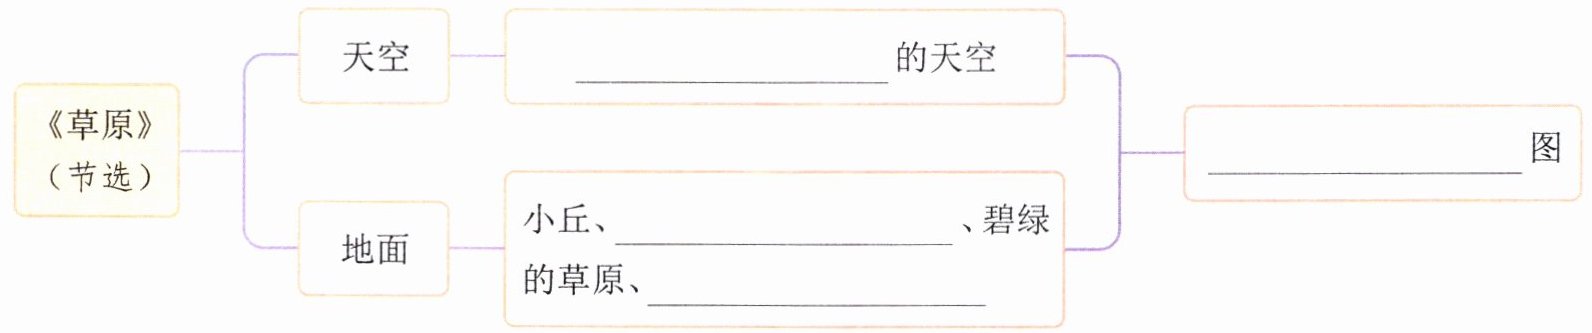 《草原》
（节选）
天空
____的天空
地面
小丘、____、碧绿
的草原、____
____图